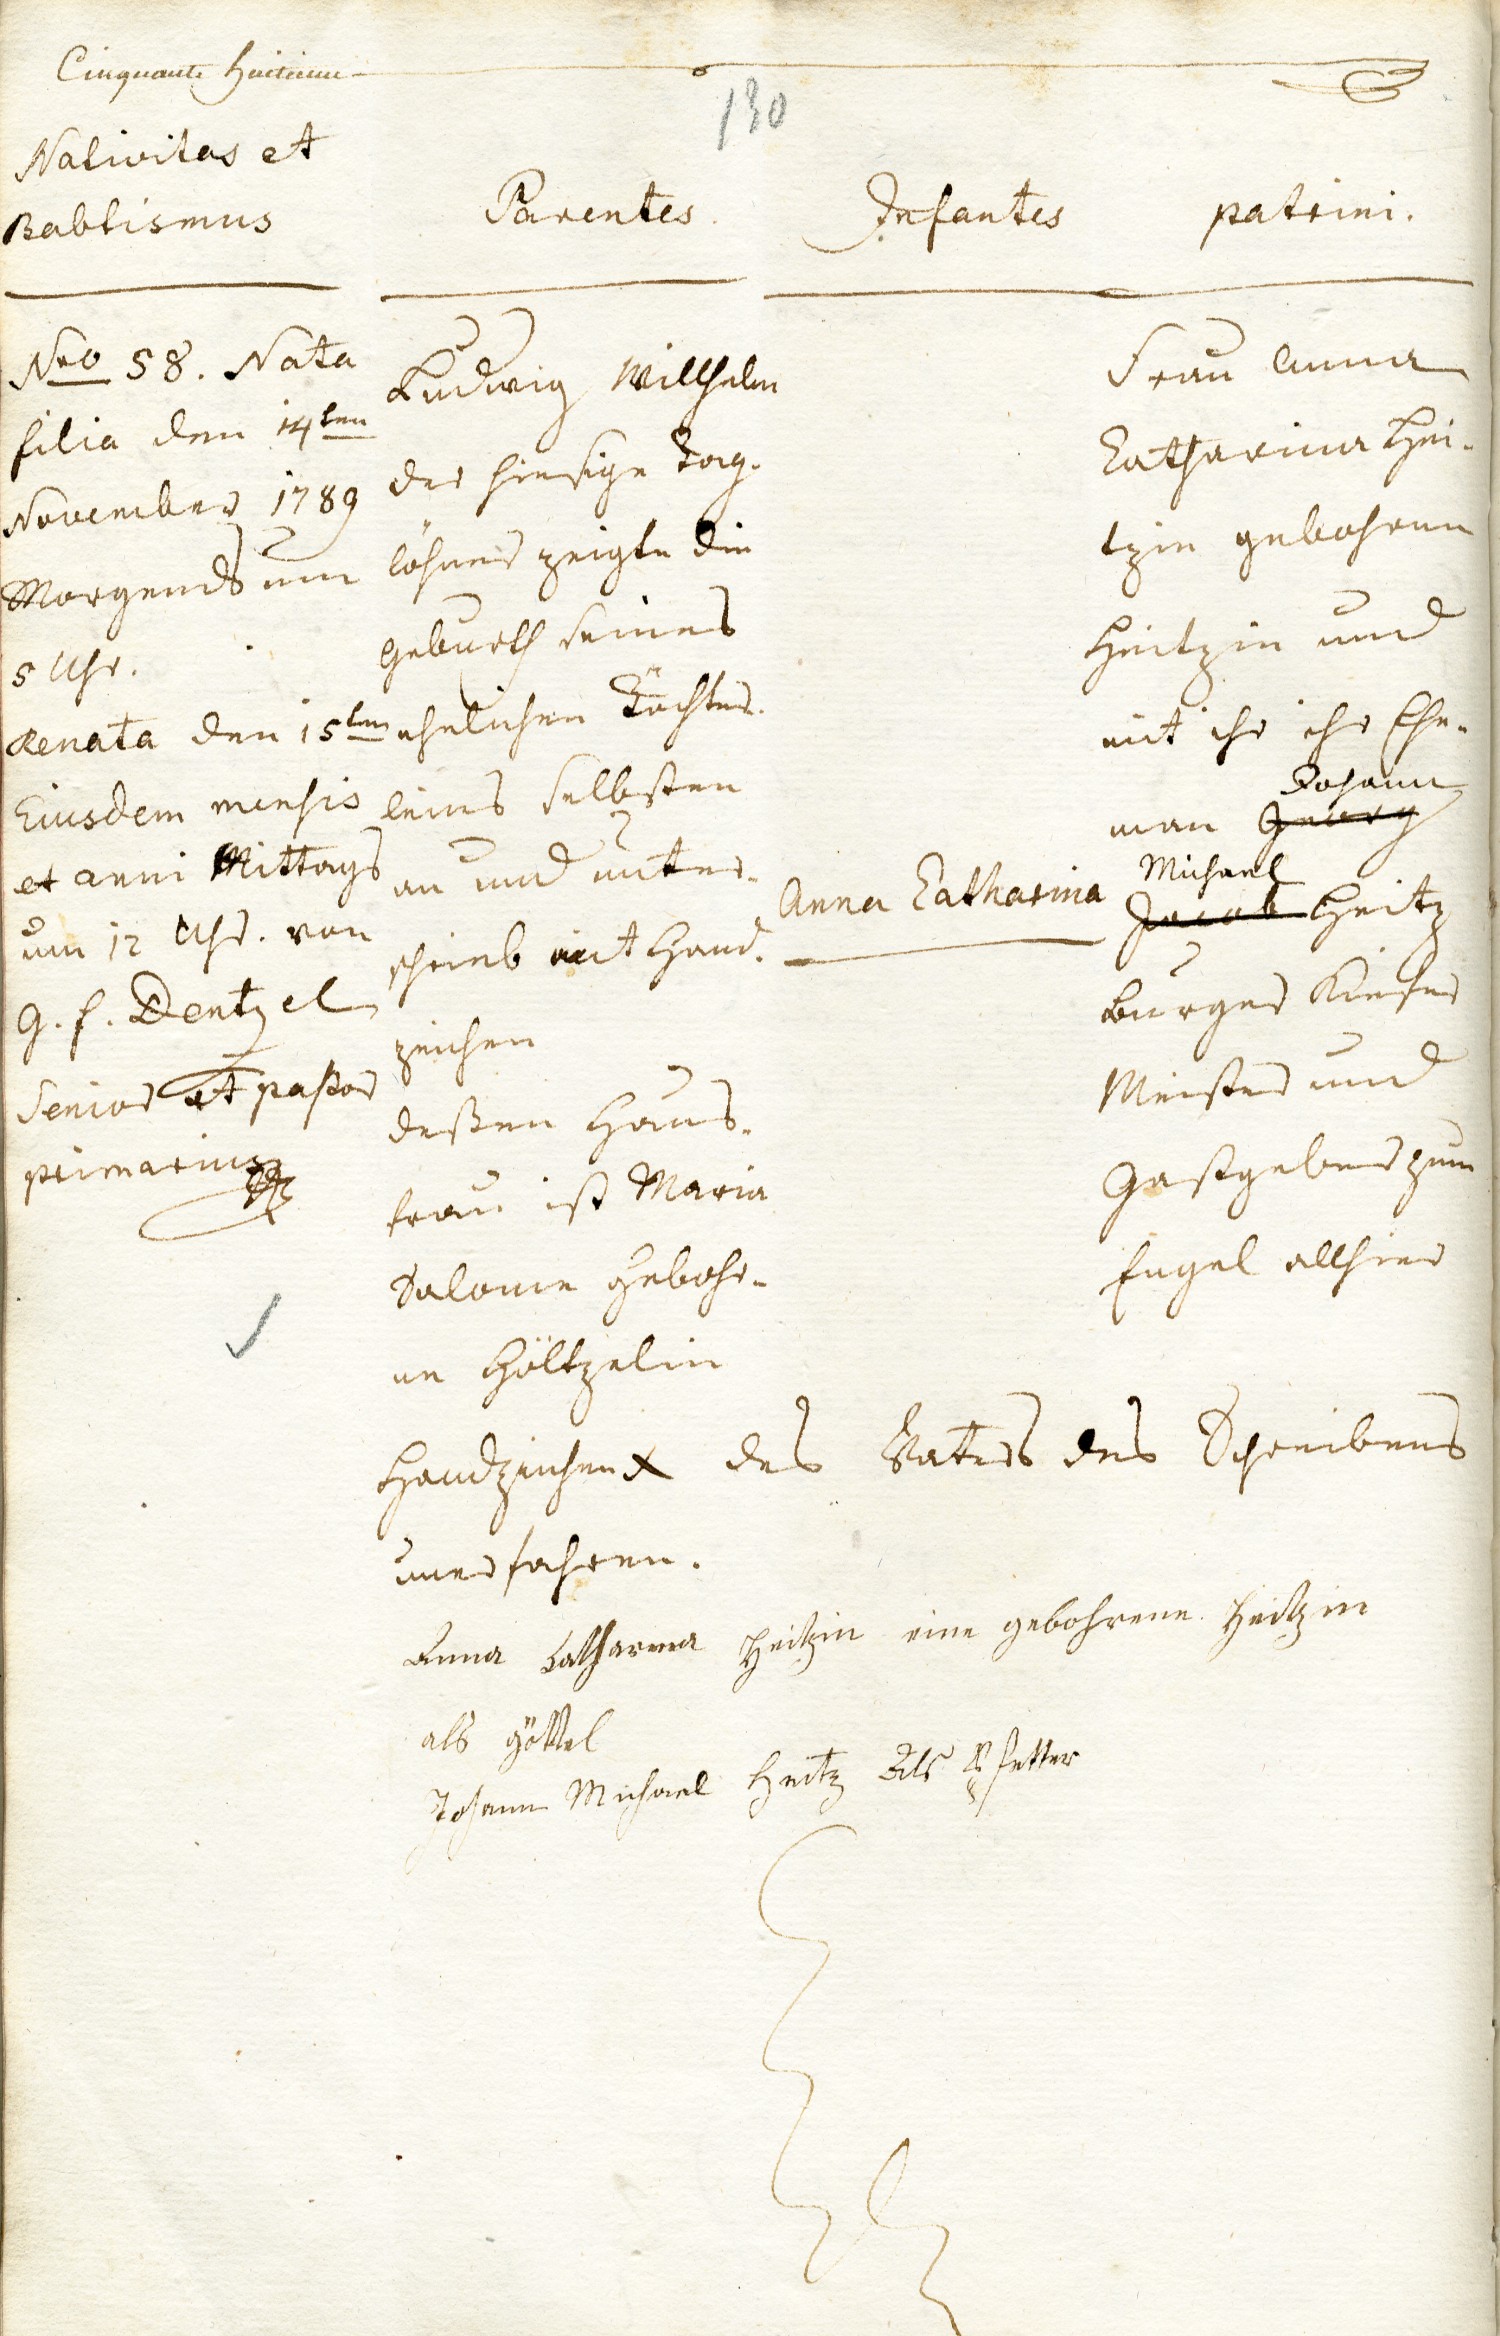 Cinquante huitieme
130
Nativitas et
Babtismus
Parentes.
Infantes
patrini.
Nro 58. Nata
filia den 14ten
November 1789
Morgends um
5 Uhr.
Renata den 15ten
Eiusdem mensis
et anni Mittags
um 12 Uhr. von
G. f. Dentzel
Senior et pastor
primarius
Ludwig Willhelm
der hiesige Tag-
löhner zeigte die
Geburth seines
ehelichen Töchter-
leins selbsten
an und unter-
schrieb mit Hand-
zeichen
deßen Haus-
frau ist Maria
Salome gebohr-
ne Höltzelin
Anna Catharina
Frau Anna
Catharina Hei-
tzin gebohrne
Heitzin und
mit ihr ihr Ehe-
Johann
man Georg
Michael
Jacob Heitz
burger Kiefer
Meister und
Gastgeber zum
Engel allhier
Handzeichen x des Vaters des Schreibens
unerfahren.
Anna Catharina Heitzin eine gebohrene Heitzin
als göttel
Johann Michael Heitz Als Pfetter